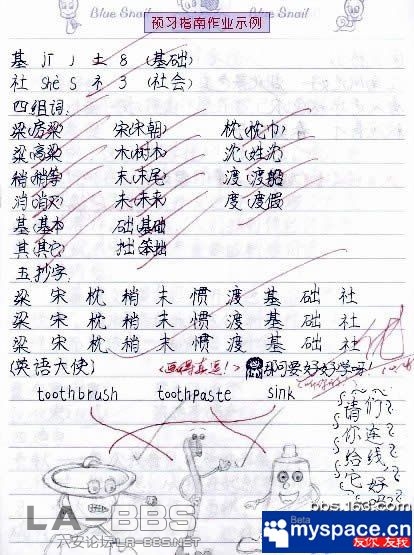 Blue Snail Blue Snail
预习指南作业示例
基 jī 丿 土 8 (基础)
社 shè S 礻 3 (社会)
四组词:
梁(房梁) 宋(宋朝) 枕(枕巾)
粱(高粱) 木(树木) 沈(姓沈)
稍(稍等) 末(末尾) 渡(渡船)
消(消灭) 未(未来) 度(度假)
基(基本 础(基础
其(其它 拙(笨拙
五抄字.
梁 宋 枕 稍 末 惯 渡 基 础 社
梁 宋 枕 稍 末 惯 渡 基 础 社
梁 宋 枕 稍 末 惯 渡 基 础 社
(英语大使) (画得真逗!) 那可要好好学呀!
toothbrush toothpaste sink
请们
你连
给线
它好
LA-BBS
六安论坛LA-BBS.NET
bbs.169.com
Beta
myspace.cn
友你 友我